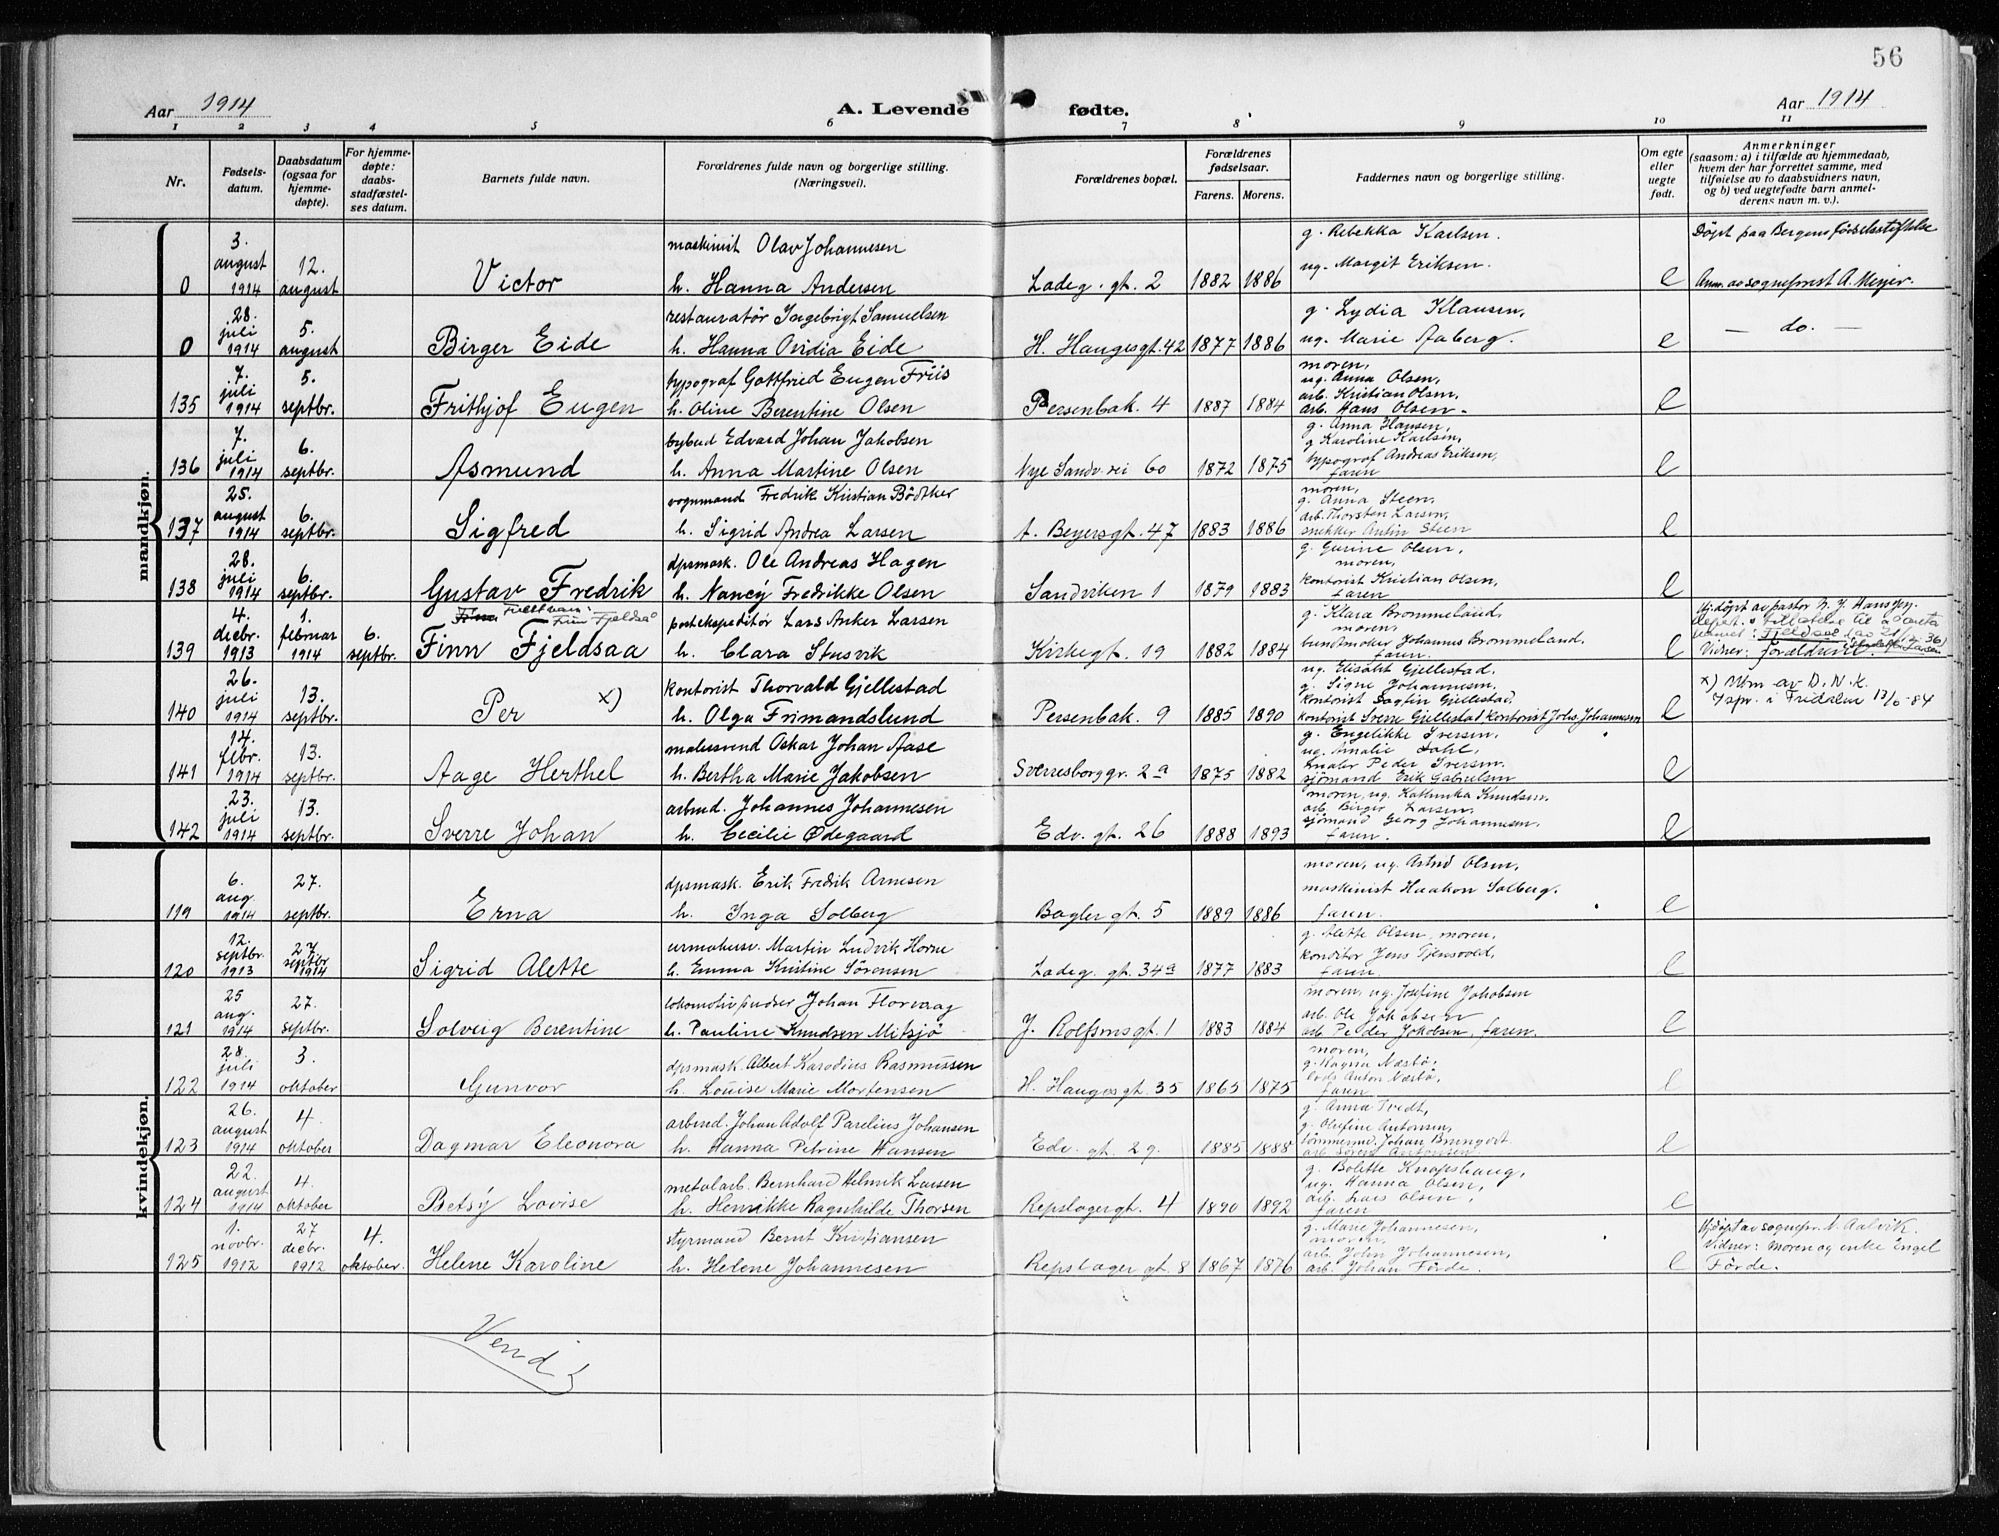 56
Aar 1914
A. Levende fødte.
Aar 1914
1 2 3 4 5 6 7 8 9 10 11
Nr.
Fødsels-
datum.
Daabsdatum
(ogsaa for
hjemme-
døpte).
For hjemme-
døpte:
daabs-
stadfæstel-
ses datum.
Barnets fulde navn.
Forældrenes fulde navn og borgerlige stilling.
(Næringsvei).
Forældrenes bopæl.
Forældrenes
fødselsaar.
Farens. Morens.
Faddernes navn og borgerlige stilling.
Om egte
eller
uegte
født.
Anmerkninger
(saasom: a) i tilfælde av hjemmedaab,
hvem der har forrettet samme, med
tilføielse av to daabsvidners navn,
og b) ved uegtefødte barn anmel-
derens navn m. v.).
mandkjøn.
0
3.
august
1914
12.
august
Victor
maskinist Olav Johannesen
h. Hanna Andersen
Ladeg. gt. 2
1882 1886
g. Rebekka Karlsen.
ug. Margit Eriksen.
e
Døpt paa Bergens fødselsstiftelse
Anm. av sogneprest A. Meyer.
0
28.
juli
1914
5.
august
Birger Eide
restauratør Ingebrigt Samuelsen
h. Hanna Ovidia Eide
H. Haugesgt. 42
1877 1886
g. Lydia Klausen,
ug. Marie Aaberg.
e
— do. —
135
7.
juli
1914
5.
septbr.
Frithjof Eugen
typograf Gottfried Eugen Friis
h. Oline Berentine Olsen
Persenbak. 4
1887 1884
moren,
ug. Anna Olsen,
arb. Kristian Olsen,
arb. Hans Olsen.
e
136
7.
juli
1914
6.
septbr.
Asmund
bybud Edvard Johan Jakobsen
h. Anna Martine Olsen
Nye Sandv. vei 60
1872 1875
g. Anna Hansen,
g Karoline Karlsen,
typograf Andreas Eriksen,
faren
e
137
25.
august
1914
6.
septbr.
Sigfred
vognmand Fredrik Kristian Bødtker
h. Sigrid Andrea Larsen
A. Beyersgt. 47
1883 1886
moren,
g. Anna Steen,
arb. Thorsten Larsen,
snekker Anton Steen
e
138
28.
juli
1914
6.
septbr.
Gustav Fredrik
dpsmask. Ole Andreas Hagen
h. Nancy Fredrikke Olsen
Sandviken 1
1879 1883
g. Gurine Olsen,
moren,
kontorist Kristian Olsen,
faren
e
139
4.
dicbr.
1913
1.
februar
1914
6.
septbr.
Finn Fjeldsaa
postekspeditør Lars Anker Larsen
h. Clara Stusvik
Kirkegt. 19
1882 1884
g. Klara Brommeland,
moren,
buntmaker Johannes Brommeland.
faren
e
Vidner: Forældrene
140
26.
juli
1914
13.
septbr.
Per x)
kontorist Thorvald Gjellestad
h. Olga Frimandslund
Persenbak. 9
1885 1890
ug. Elisabt Gjellestad,
g. Signe Johannesen,
kontorist Dagfin Gjellestad,
kontorist Sverre Gjellestad kontorist Johs. Johannesen
e
x) Utm av D. N. K.
141
14.
febr.
1914
13.
septbr.
Aage Herthel
malersvend Oskar Johan Aase
h. Bertha Marie Jakobsen
Sverresborggr. 2a
1875 1882
g. Engelikke Iversen,
ug. Amalie Dahl,
maler Peder Iversen.
sjømand Erik Gabrielsen
e
142
23.
juli
1914
13.
septbr.
Sverre Johan
arbeid. Johannes Johannesen
h. Cecilie Ødegaard
Edv. gt. 26
1888 1893
moren, ug. Kathinka Knudsen.
arb Birger Larsen.
sjömand Georg Johannesen.
faren.
e
kvindekjøn.
119
6.
aug.
1914
27.
septbr.
Erna
dpsmask. Erik Fredrik Arnesen
h. Inga Solberg
Bagler gt. 5
1889 1886
moren, ug. Astrid Olsen,
maskinist Haakon Solberg.
faren.
e
120
12.
septbr.
1913
27.
septbr
1914
Sigrid Alette
urmaker Martin Ludvik Horne
h. Emma Kristine Sørensen
Ladeg. gt. 34a
1877 1883
g. Alette Olsen, moren,
konditor Jens Tjensvold,
faren.
e
121
25
aug.
1914
27.
septbr.
Solveig Berentine
lokomotivpudser Johan Florvaag
h. Pauline Knudsen Mitsjø
J. Rolfsnsgt. 1
1883 1884
moren, ug. Josefine Jakobsen
arb. Ole Jakobsen
arb Peder Jakobsen, faren.
e
122
28.
juli
1914
3.
oktober
Gunvor
dpsmask. Albert Karodius Rasmussen
h. Louise Marie Mortensen
H. Haugesgt. 35
1865 1875
moren,
g. Magna Næstø,
lods Anton Næstø,
faren.
e
123
26.
august
1914
4.
oktober
Dagmar Eleonora
arbeid. Johan Adolf Parelius Johansen
h. Hanna Petrine Hansen
Edv. gt. 29.
1885 1888
g. Anna Tvedt,
g. Olufine Antonsen,
tømmermd. Johan Brungort.
arb. Søren Antonsen
e
124
22.
august
1914
4.
oktober
Betsy Lovise
metalarb. Bernhard Helmik Larsen
h. Henrikke Ragnhilde Thorsen
Repslagergt. 4
1890 1892
g. Bolette Knapshaug,
ug. Hanna Olsen,
arb. Lars Olsen,
faren
e
125
1.
novbr.
1912
27
dicbr.
1912
4.
oktober.
Helene Karoline
styrmand Bernt Kristiansen
h. Helene Johannesen
Repslager gt. 8
1867 1876
g. Marie Johannesen,
moren,
arb. John Johannesen,
arb. Johan Førde.
e
Hjdøpt av sognepr. A. Aalvik.
Vidner: Moren og enke Engel
Førde.
Vend